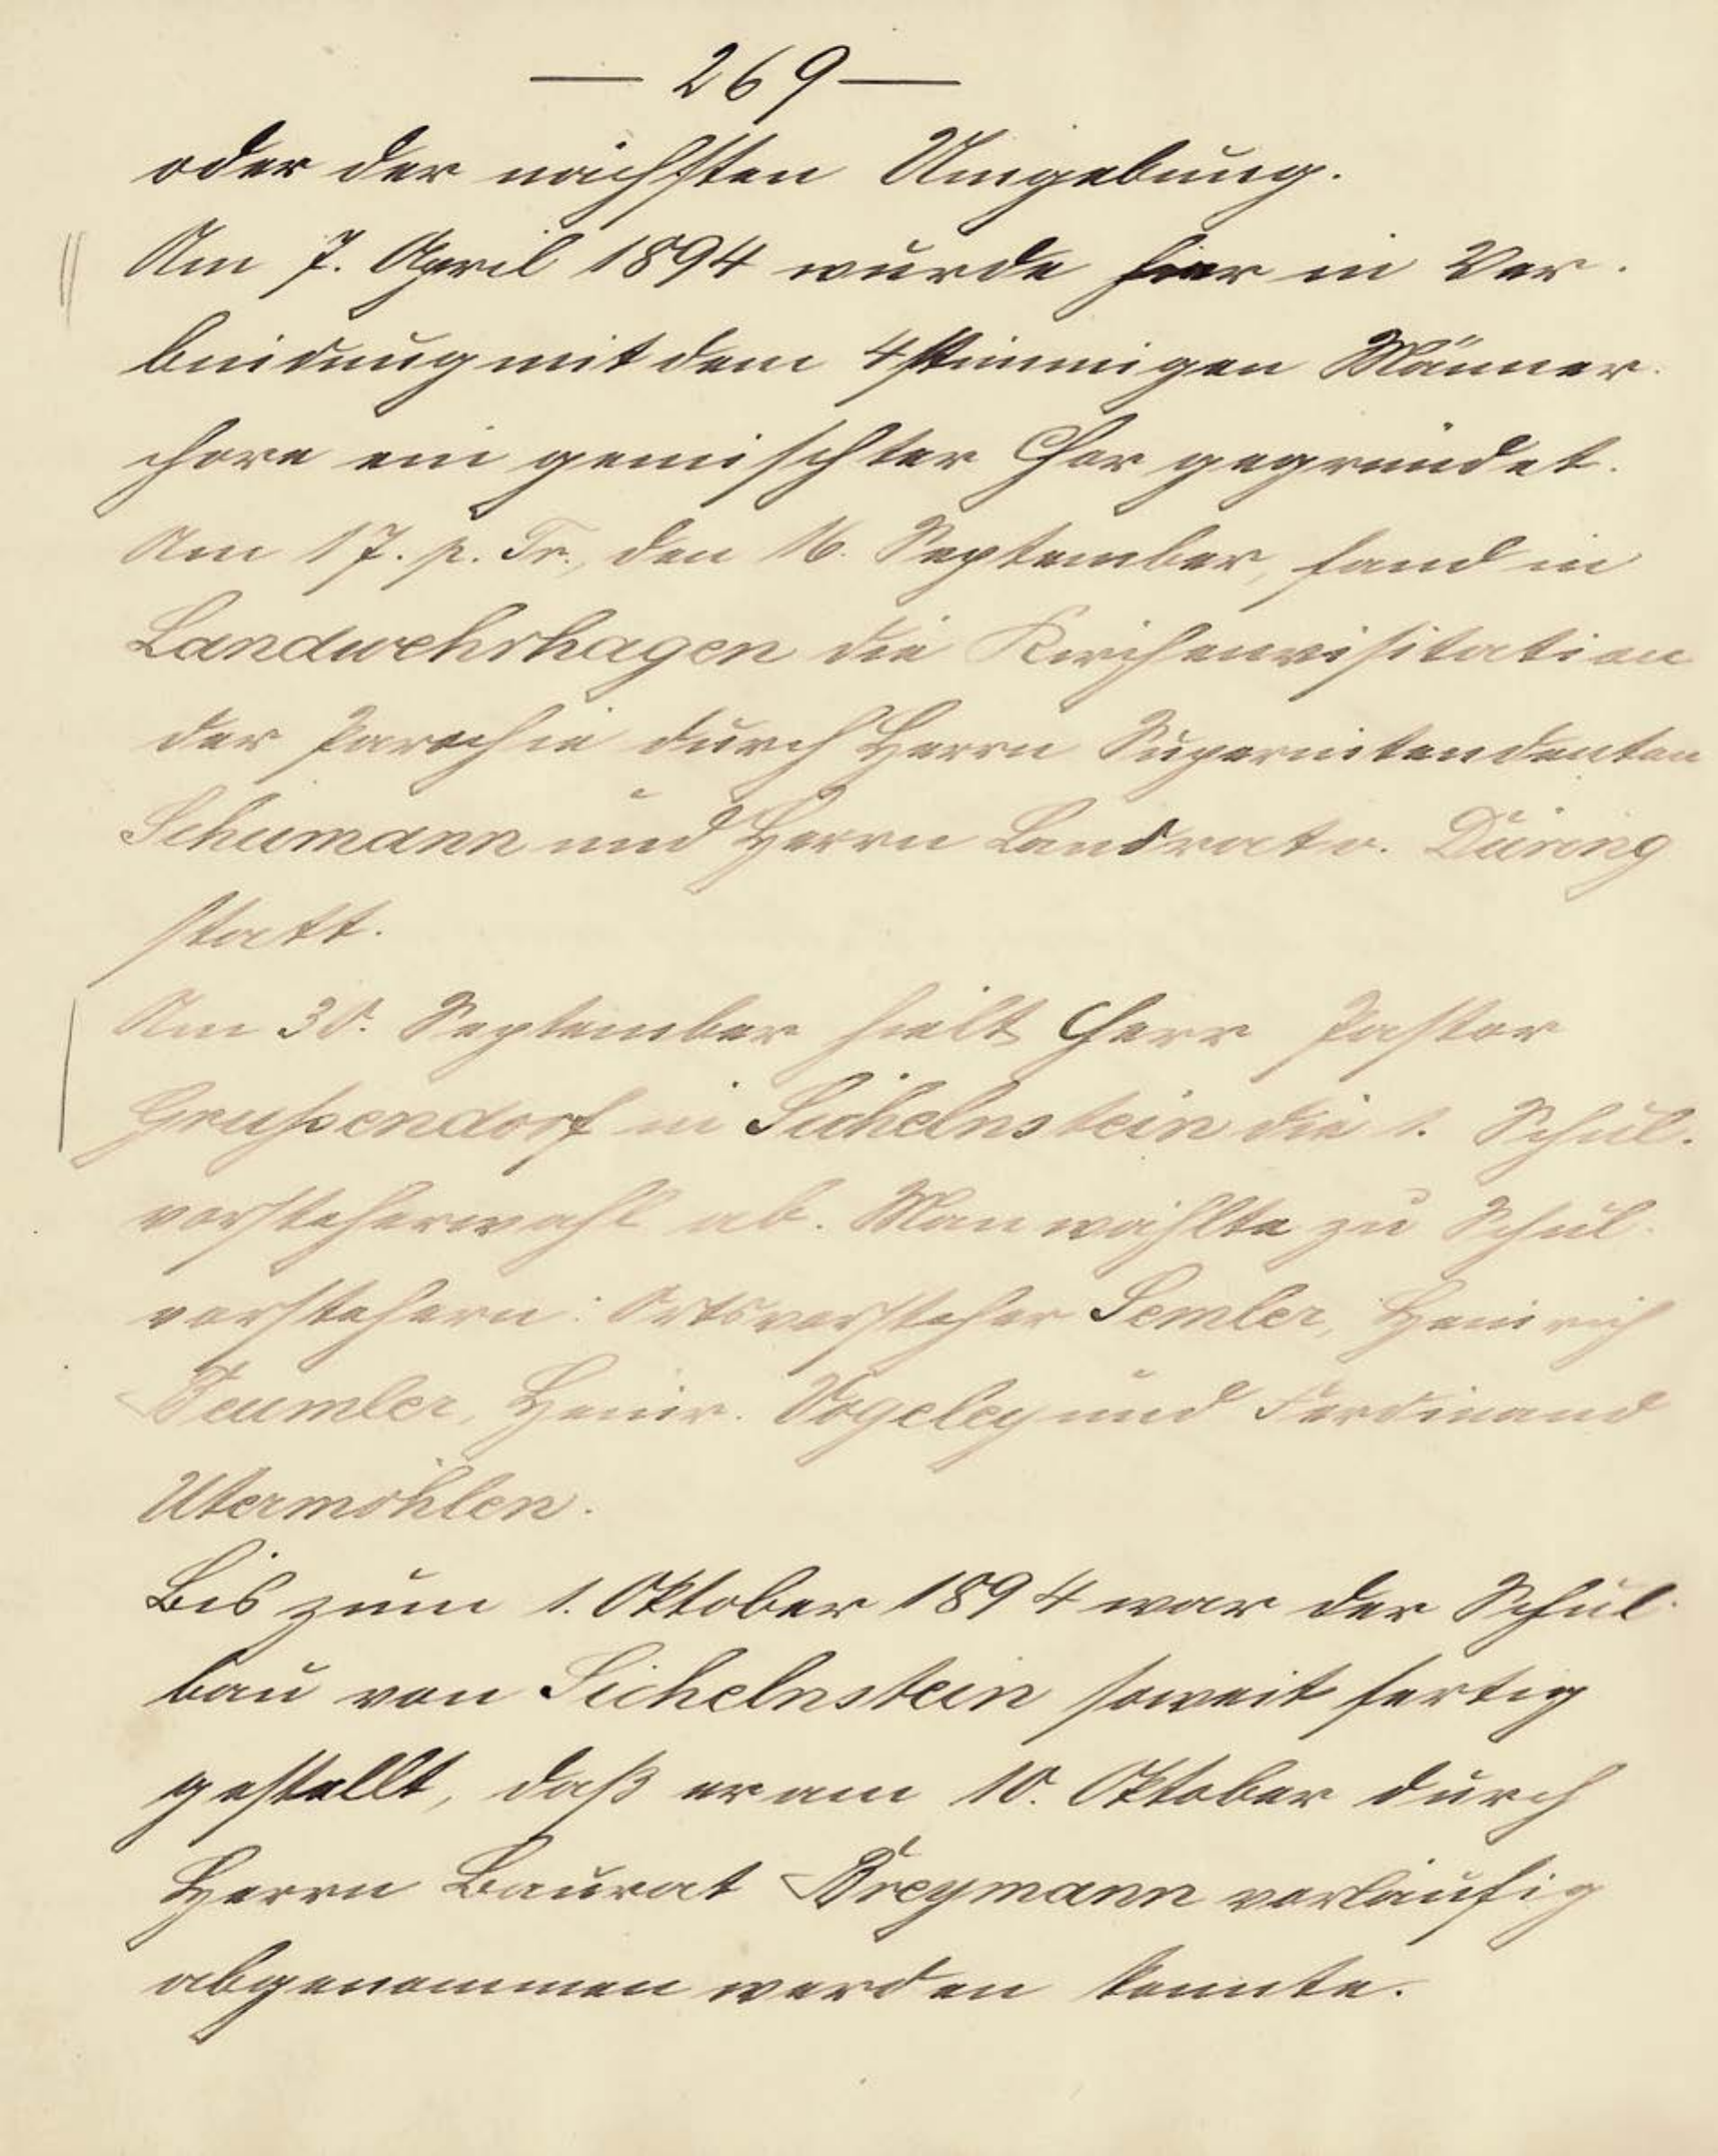 — 269 —
oder der nächsten Umgebung.
Am 7. April 1894 wurde hier in Ver-
bindung mit dem 4stimmigen Männer-
chore ein gemischter Chor gegründet.
Am 17. p. Tr., den 16. September, fand in
Landwehrhagen die Kirchenvisitation
der Parochie durch Herrn Superintendenten
Schumann und Herrn Landrat v. Düring
statt.
Am 30. September hielt Herr Pastor
Grußendorf in Sichelnstein die 1. Schul-
vorsteherwahl ab. Man wählte zu Schul-
vorstehern: Ortsvorsteher Semler, Heinrich
Teumler, Heinr. Vogeley und Ferdinand
Utermöhlen.
Bis zum 1. Oktober 1894 war der Schul-
bau von Sichelnstein soweit fertig
gestellt, daß er am 10. Oktober durch
Herrn Baurat Breymann vorläufig
abgenommen werden konnte.